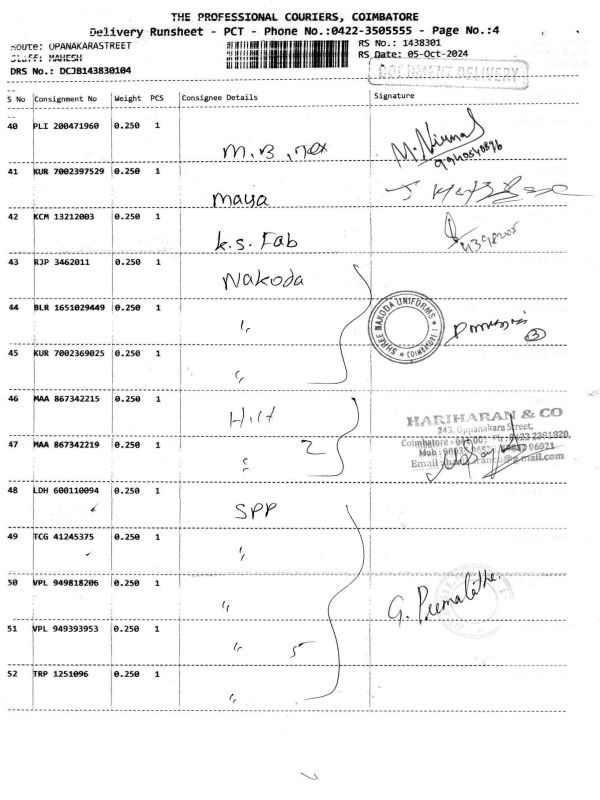 THE PROFESSIONAL COURIERS, COIMBATORE
Delivery Runsheet - PCT - Phone No.:0422-3505555 - Page No.:4
Route: OPANAKARASTREET
RS No.: 1438301
Staff: MAHESH
RS Date: 05-Oct-2024
DRS No.: DCJB143830104
DOCUMENT DELIVERY
S No Consignment No Weight PCS Consignee Details Signature
40 PLI 200471960 0.250 1
M.B.Tex
M. Nirmal
41 KUR 7002397529 0.250 1
maya
42 KCM 13212003 0.250 1
k.s. Fab
43 RJP 3462011 0.250 1
Nakoda
44 BLR 1651029449 0.250 1
"
SHREE NAKODA UNIFORMS
* COIMBATORE *
3
45 KUR 7002369025 0.250 1
"
46 MAA 867342215 0.250 1
HARIHARAN & CO
243, Oppanakara Street,
47 MAA 867342219 0.250 1
2
48 LDH 600110094 0.250 1
SPP
49 TCG 41245375 0.250 1
"
50 VPL 949818206 0.250 1
"
G. Premalatha
51 VPL 949393953 0.250 1
" 5
52 TRP 1251096 0.250 1
"